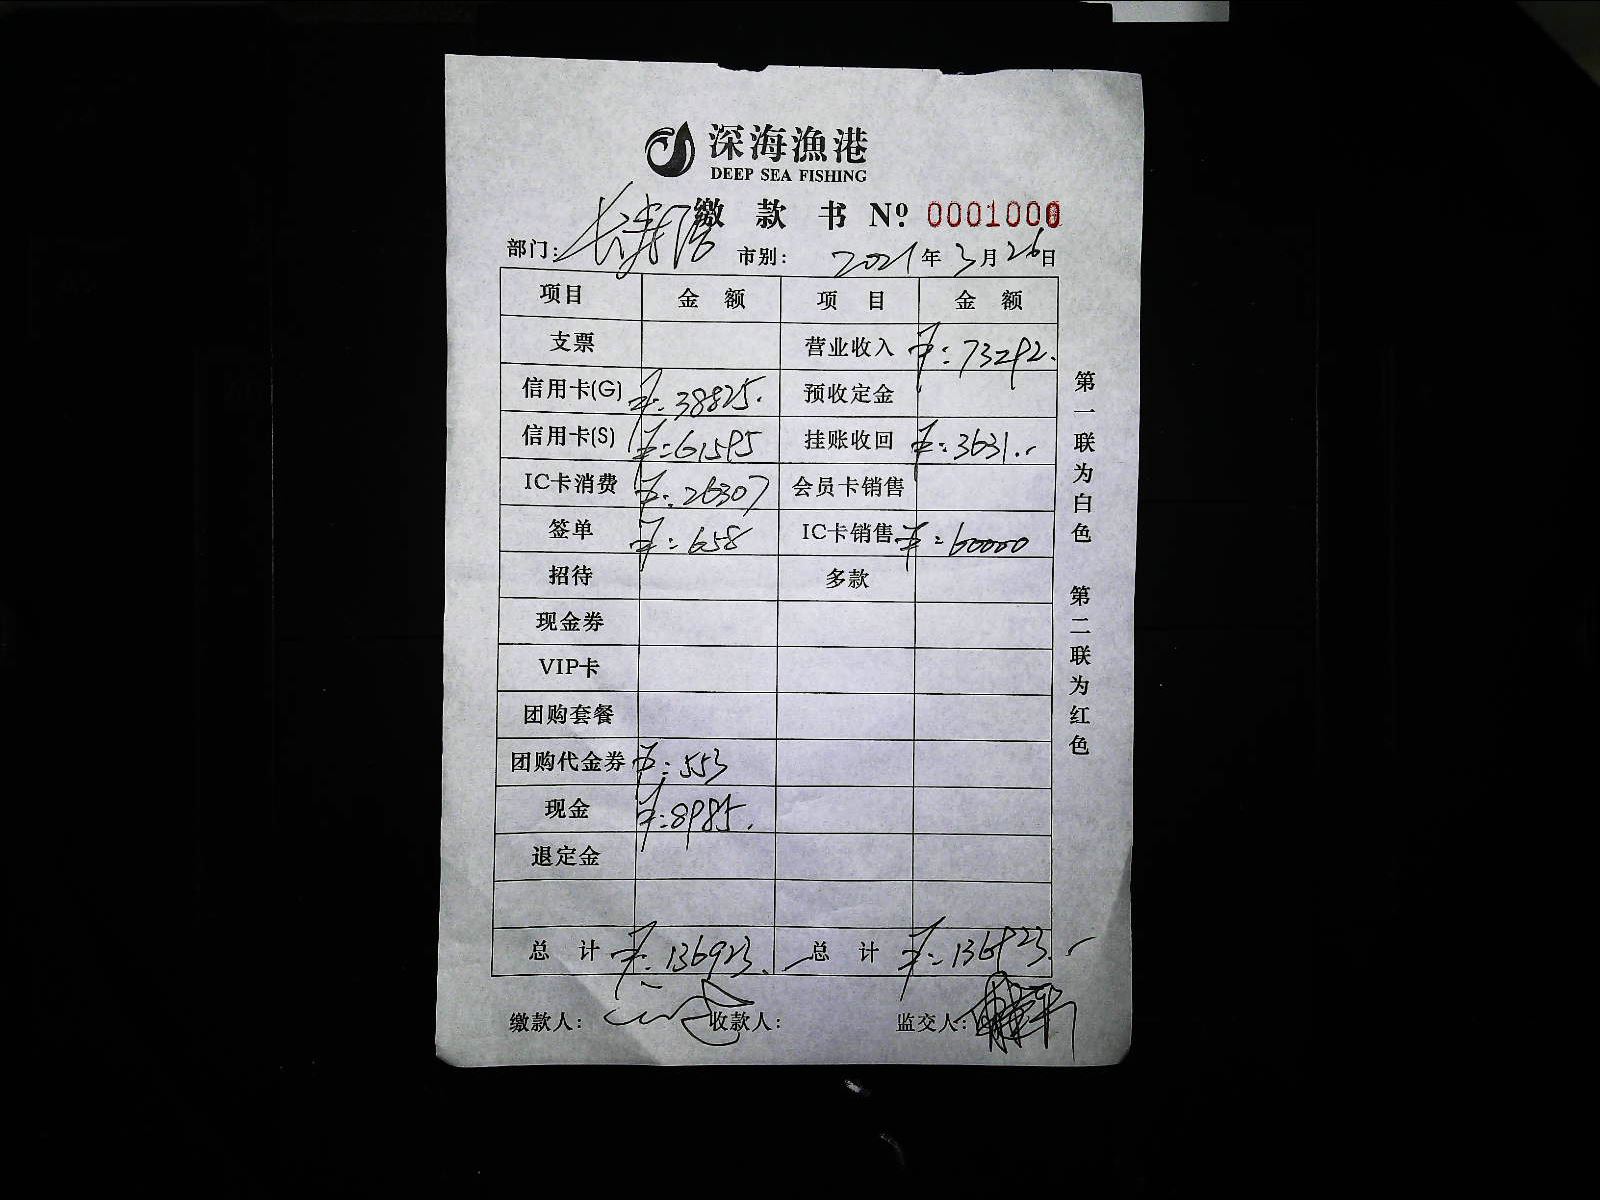 深海漁港
DEEP SEA FISHING
缴款书 Nº 0001000
部门: 市别: 2021年3月26日
项目 金额 项目 金额
支票 营业收入 ¥:73292.
信用卡(G) ¥:38825. 预收定金
信用卡(S) ¥:61595 挂账收回 ¥:3631.
IC卡消费 ¥:26307 会员卡销售
签单 ¥:658 IC卡销售 ¥:60000
招待 多款
现金券
VIP卡
团购套餐
团购代金券 ¥:553
现金 ¥:8985.
退定金
总计 ¥:136923. 总计 ¥:136923.
缴款人: 收款人: 监交人:
第一联为白色 第二联为红色